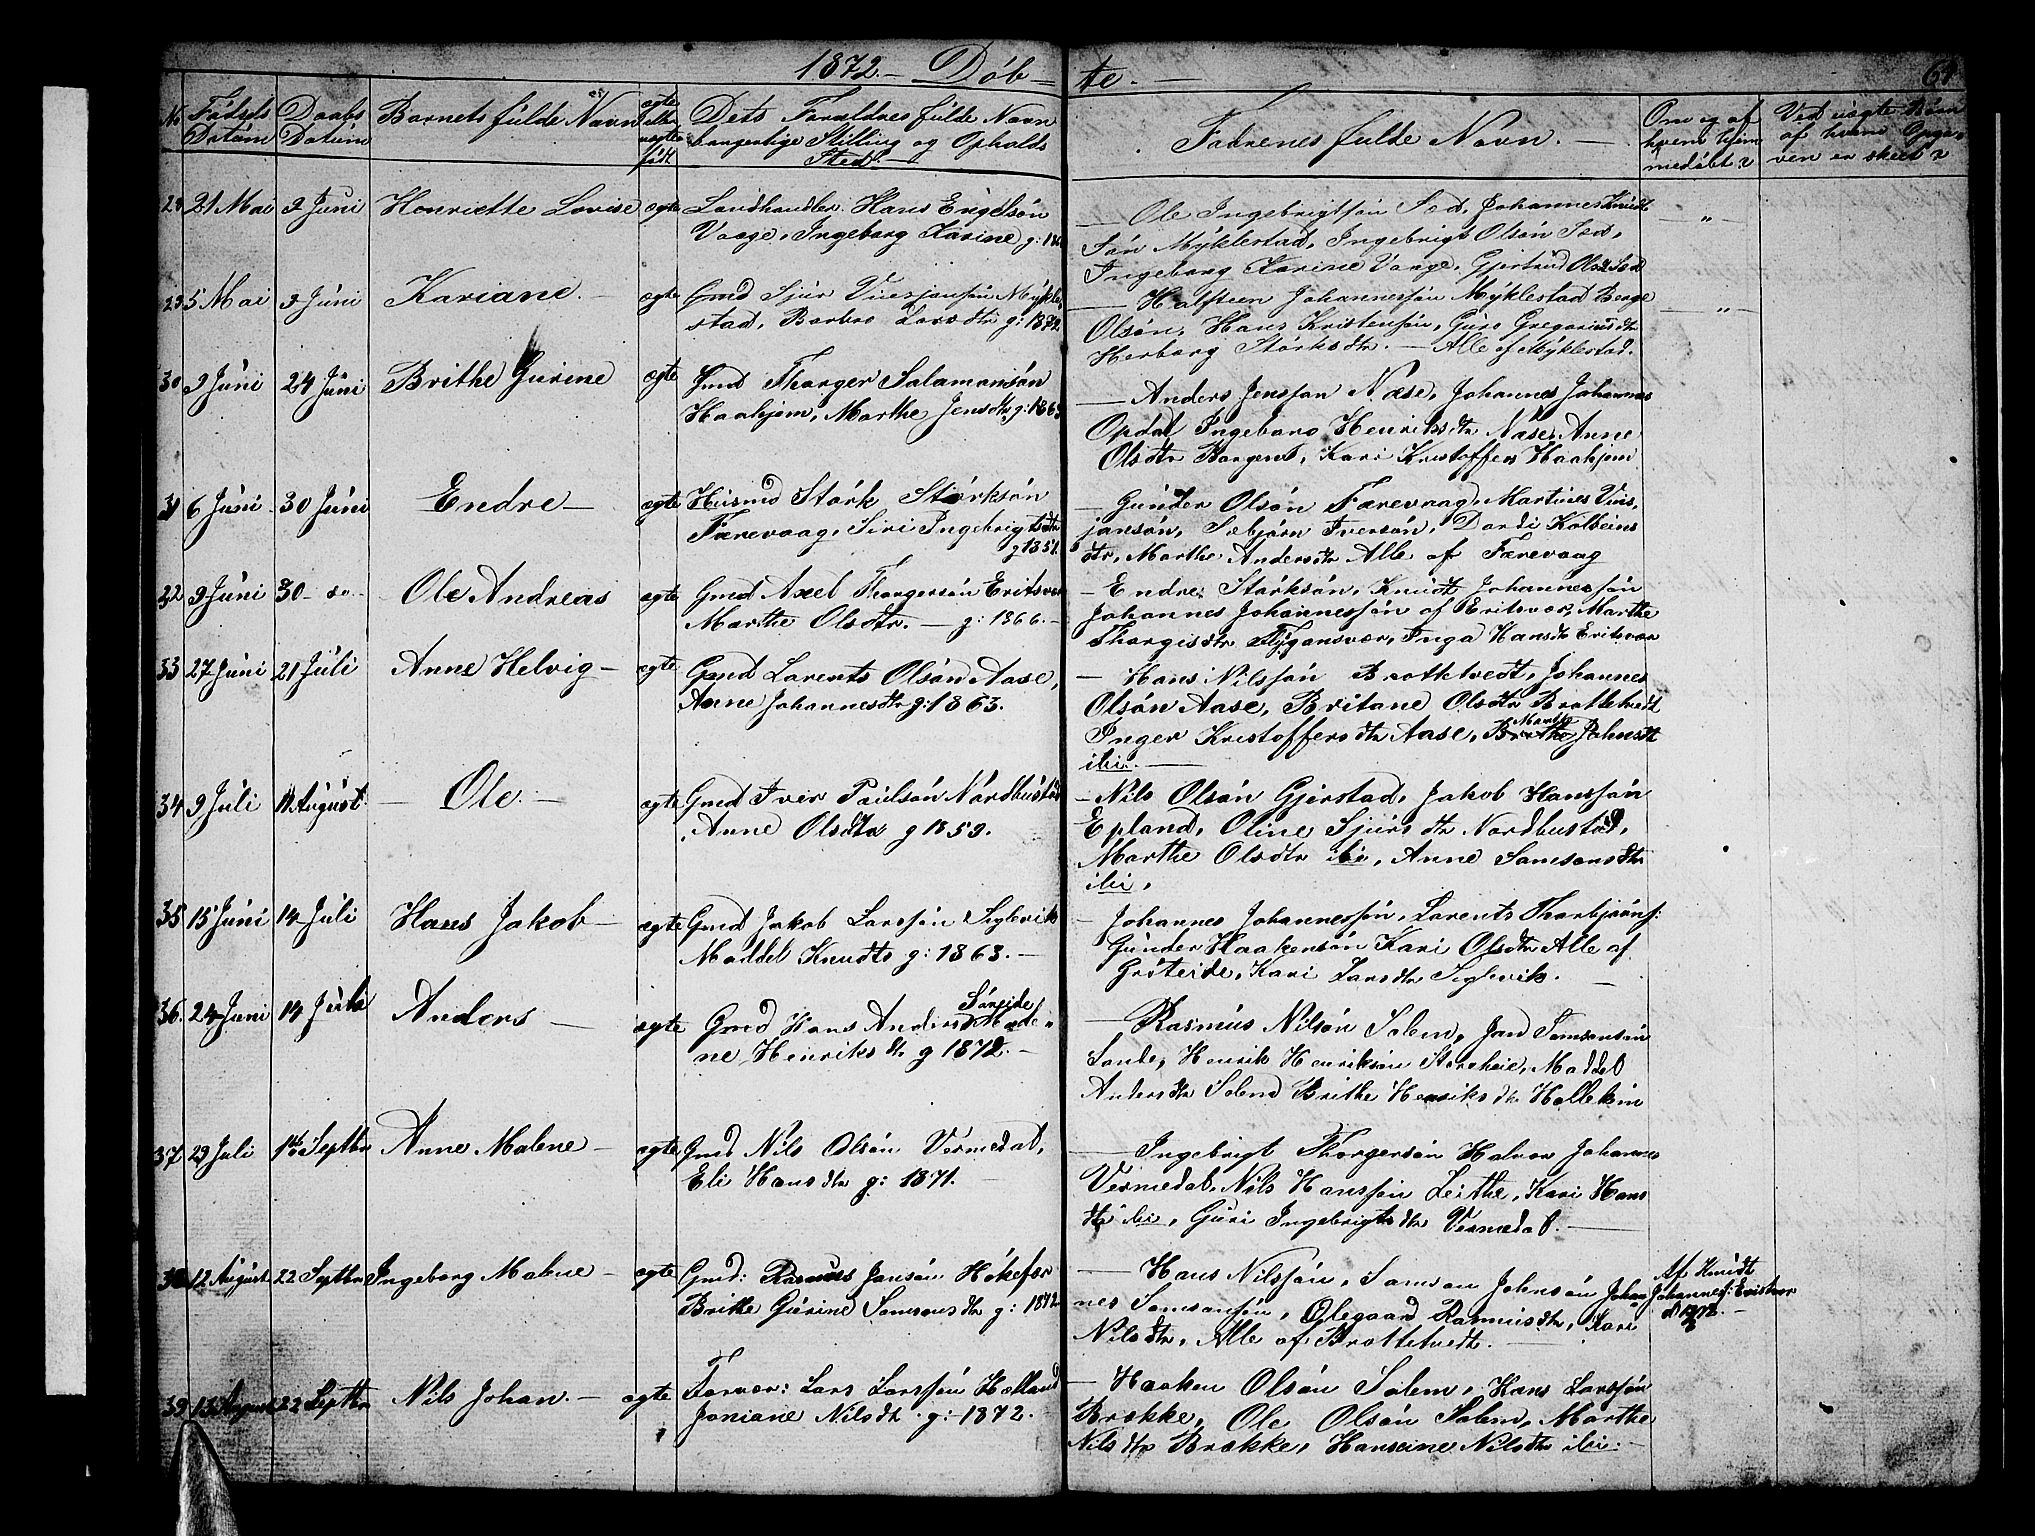 1872. — Döb— te. —
No Födsels Datum
Daabs Datum
Barnets fulde Navn
ægte eller uægte født
Dets Forældres fulde Navn borgerlige Stilling og Opholds Sted.
Faddrenes fulde Navn. —
Om og af hvem hjemmedöbt?
Ved uægte Börn af hvem Opgaven er skeet?
21 Mai 9 Juni Henriette Lovise ægte Landhandler Hans Engelsön
Vaage, Ingeborg Karine
— Ole Ingebrigtsön Sæd, Johannes Knudt
sön Myklestad, Ingebrigt Olsön Sæd,
Ingeborg Karine Vaage, Gjertrud Olsd Sæd
5 Mai 9 Juni Kariane. — ægte Gmd Sjur Vivesjansön Mykle
stad, Barbro Larsdtr g: 1872
— Halsteen Johannessön Myklestad Berge
Olsön, Hans Kristensön, Guro Gregoriusdtr
Herborg Störksdtr. — Alle af Myklestad.
30 9 Juni 24 Juni Brithe Gurine ægte Gmd Thorger Salamonsön
Haahjem, Marthe Jensdtr g: 1863
— Anders Jenssøn Næse, Johannes Johannes
Opdal Ingeborg Henriksdtr Næse, Anne
Olsdtr Borgund, Kari Kristoffers Haahjem
31 6 Juni 30 Juni Endre — ægte Husmd Störk Störksön
Færevaag, Siri Ingebrigtsdtr
g 1851.
— Gunder Olsön Færevaag, Martines Vivis
jansön, Sebjörn Iversön, Dordi Kolbeins
dtr, Marthe Andersdtr Alle af Færevaag
9 Juni 30 — do — Ole Andreas ægte Gmd Axel Thorgersön Eritsvær
Marthe Olsdtr. — g: 1866. —
— Endre Störksön, Knudt Johannessön
Johannes Johannessön af Eritsvær, Marthe
Thorgisdtr Flyganswær, Inga Hansdtr Eritsvær
33 27 Juni 21 Juli Anne Helvig — ægte Gmd Larents Olsön Aase,
Anne Johannesdtr g: 1863.
— Hans Nilssön Brattetvedt, Johannes
Olsön Aase, Britane Olsdtr Brattetvedt
Inger Kristoffersdtr Aase, Brithe Johnsdtr
ibi. —
34 9 Juli 11 August. — Ole — ægte Gmd Iver Poulsön Nordhustad
Anne Olsdtr g 1859.
— Nils Olsön Gjerstad, Jakob Hanssön
Epland, Oline Sjursdtr Nordhustad,
Marthe Olsdtr ibi, Anne Samsonsdtr
ibi,
35 15 Juni 14 Juli Hans Jakob — ægte Gmd Jakob Larssön Siglevik
Maddel Knudts g: 1863. —
— Johannes Johannessön, Larents Thorbjörns:
Gunder Haakensön Kari Olsdtr Alle af
Gröteide, Kari Larsdtr Siglevik. —
36. 24 Juni 14 Juli Anders — ægte Gmd Hans Anders Söreide
ne Henriksdtr g 1872. —
— Rasmus Nilsön Solem, Jan Samsonsön
Sande, Henrik Henriksön Storeheie, Maddel
Andersdtr Solem Brithe Henriksdtr Hellekim
37 29 Juli Septbr Anne Malene — ægte Gmd Nils Olsön Vermedal,
Eli Hansdtr g: 1871. —
— Ingebrigt Thorgersön Halvor Johannes
Vermedal, Nils Hanssön Leithe, Kari Hans
dtr ibi, Guri Ingebrigtsdtr Vermedal. —
38 12 August 22 Septbr Ingeborg Malene — ægte Gmd: Rasmus Jansön Hökefær
Brithe Gurine Samsonsdtr g: 1872
— Hans Nilssön, Samson Johnsön Johan
nes Samsonsön, Olegaard Rasmusdtr, Kari
Nilsdtr, Alle af Brattetvedt. —
Af Knudt
Johannes: Eritsvær
39 August 22 Septbr Nils Johan. — ægte Forvær: Lars Larssön Hælland
Joniane Nilsdtr g: 1872. —
— Haaken Olsön Solem, Hans Larssön
Brække, Ole Olsön Solem, Marthe
Nilsdtr Brække, Hansine Nilsdtr ibi: —